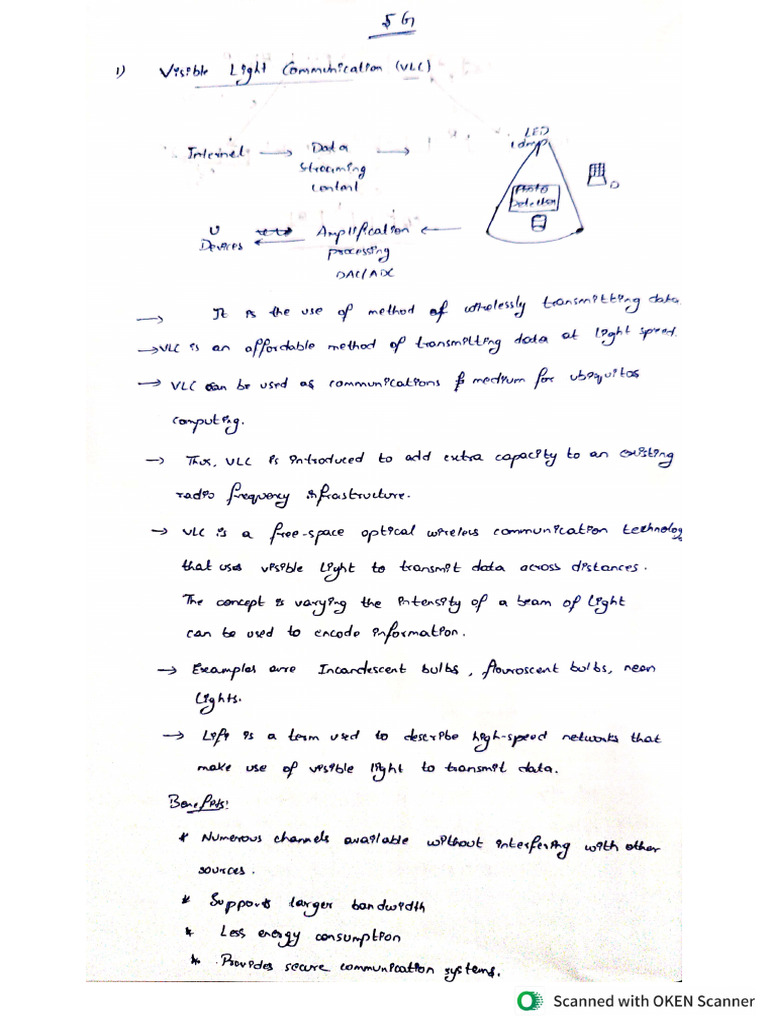 5G
1) Visible Light Communication (VLC)
LED
lamp
Internet → Data →
streaming
content
Photo
Detector
U ↔ Amplification ←
Devices ← processing
DAC/ADC
→ It is the use of method of wirelessly transmitting data.
→ VLC is an affordable method of transmitting data at light speed.
→ VLC can be used as communications & medium for ubiquitos
computing.
→ Thus, VLC is introduced to add extra capacity to an existing
radio frequency infrastructure.
→ VLC is a free-space optical wireless communication technology
that uses visible light to transmit data across distances.
The concept is varying the intensity of a beam of light
can be used to encode information.
→ Examples are Incandescent bulbs, flouroscent bulbs, neon
lights.
→ Lifi is a term used to describe high-speed networks that
make use of visible light to transmit data.
Benefits:
* Numerous channels available without interfering with other
sources.
* Supports larger bandwidth
* Less energy consumption
* Provides secure communication systems.
Scanned with OKEN Scanner